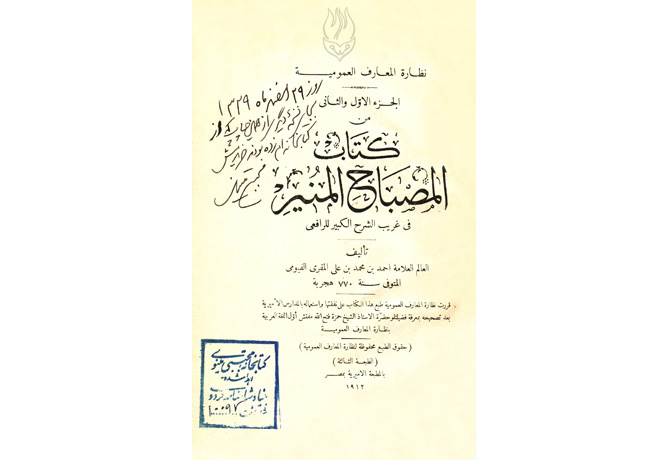 نظارة المعارف العمومية
الجزء الاول والثانى
من
كتاب
المصباح المنير
فى غريب الشرح الكبير للرافعى
تأليف
العالم العلامة احمد بن محمد بن على المقرى الفيومى
المتوفى سنة ٧٧٠ هجرية
قررت نظارة المعارف العمومية طبع هذا الكتاب على نفقتها واستعماله بالمدارس الاميرية
بعد تصحيحه بمعرفة فضيلتلو حضرة الاستاذ الشيخ حمزة فتح الله مفتش أول اللغة العربية
بنظارة المعارف العمومية
(حقوق الطبع محفوظة لنظارة المعارف العمومية)
(الطبعة الثالثة)
بالمطبعة الاميرية بمصر
١٩١٢
روز ٢٩ ماه ١٣٣٩
كتابخانه مجتبى مينوى
اهدا شده
بنياد شاهنامه فردوسى